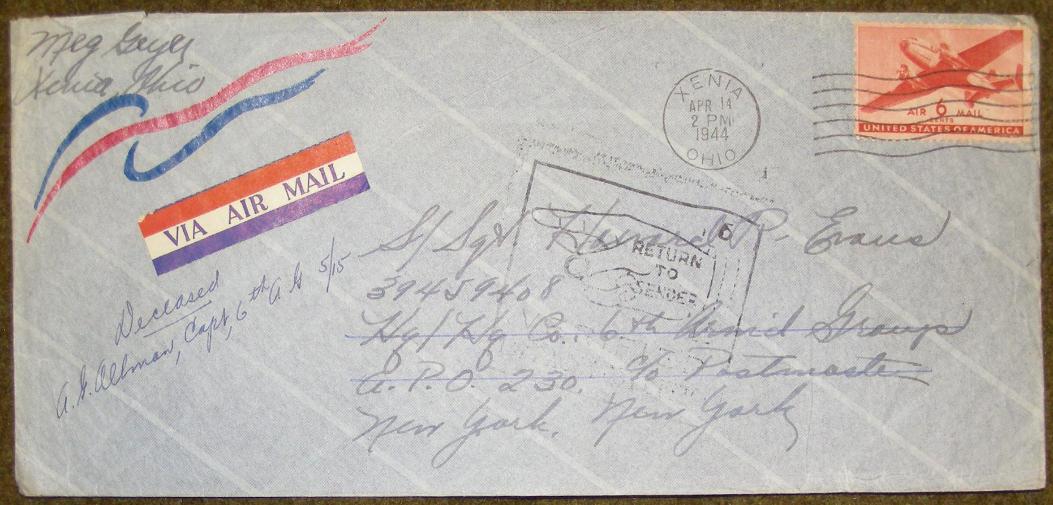 Meg
Xenia, Ohio
XENIA
APR 14
2 PM
1944
OHIO
AIR 6 MAIL
CENTS
UNITED STATES OF AMERICA
VIA AIR MAIL
S/Sgt Howard R. Evans
39459408
Hq/Hq Co. 6th Armd Groups
A.P.O. 230, c/o Postmaster
New York, New York
RETURN
TO
SENDER
Deceased
A.G. Altman, Capt, 6th A G 5/15